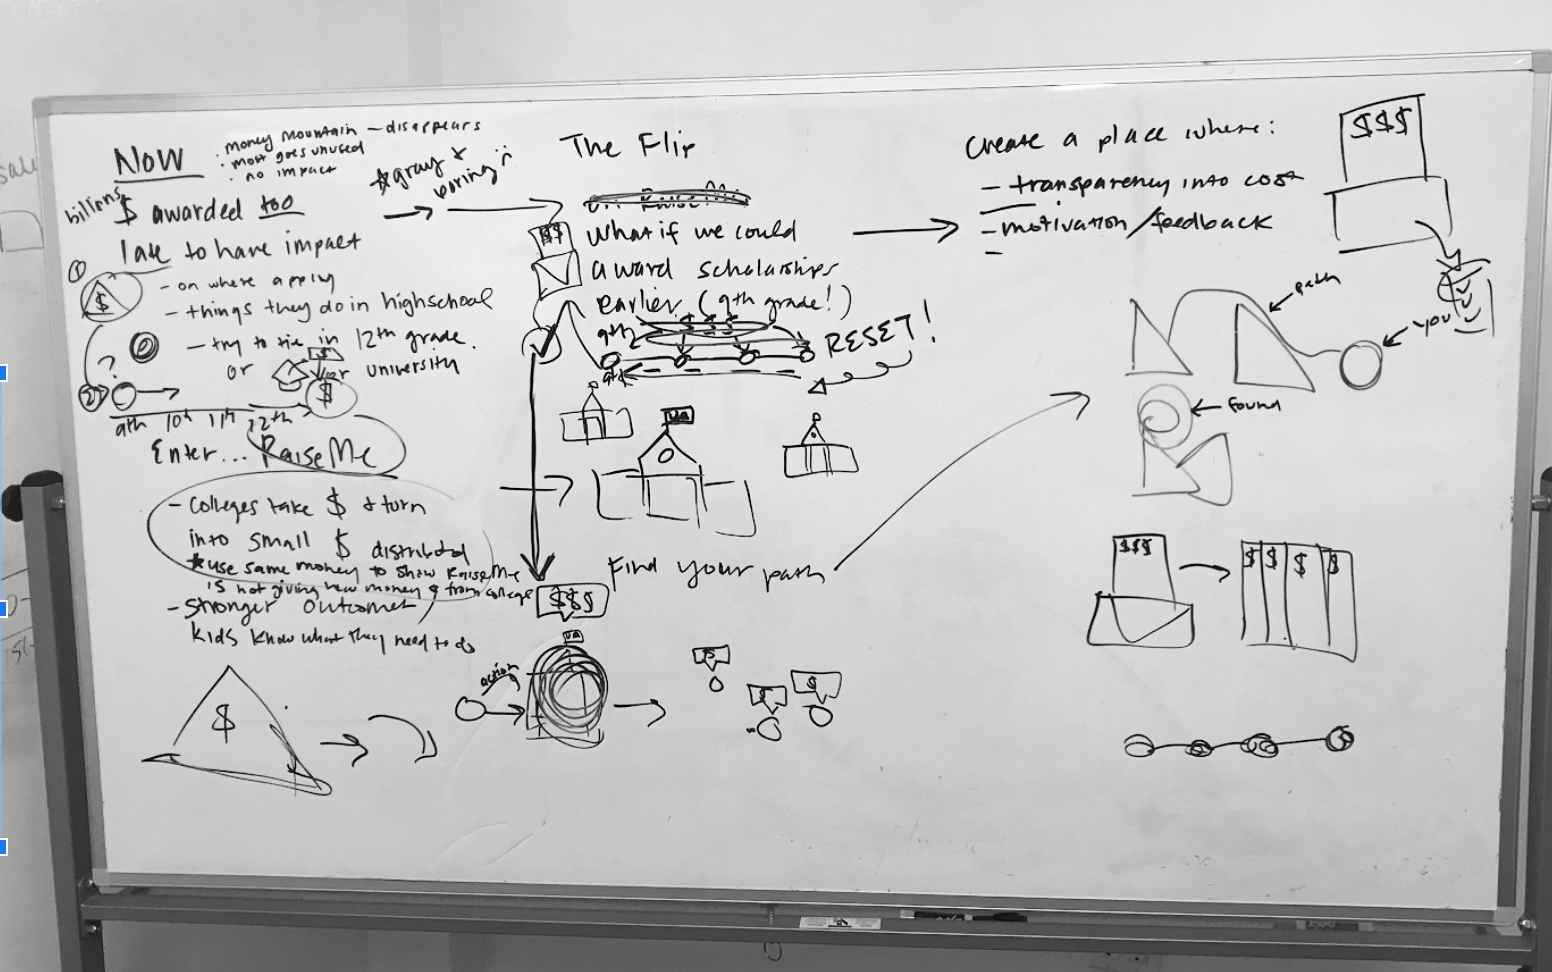 Now
money mountain - disappears
most goes unused
no impact
gray +
boring
billions
$ awarded too
late to have impact
$
- on where applying
- things they do in highschool
- try to tie in 12th grade.
or
or university
$
?
$
9th 10th 11th 12th
Enter... RaiseMe
- Colleges take $ + turn
into small $ distributed
*use same money to show RaiseMe
is not giving new money & from college
- Stronger outcomes
kids know what they need to do
$
The Flip
$$
What if we could
award scholarships
earlier (9th grade!)
9th
RESET!
UA
Find your path
$$$
UA
action
$
$
$
Create a place where:
- transparency into cost
- motivation/feedback
-
$$$
path
you
found
$$$
$ $ $ $